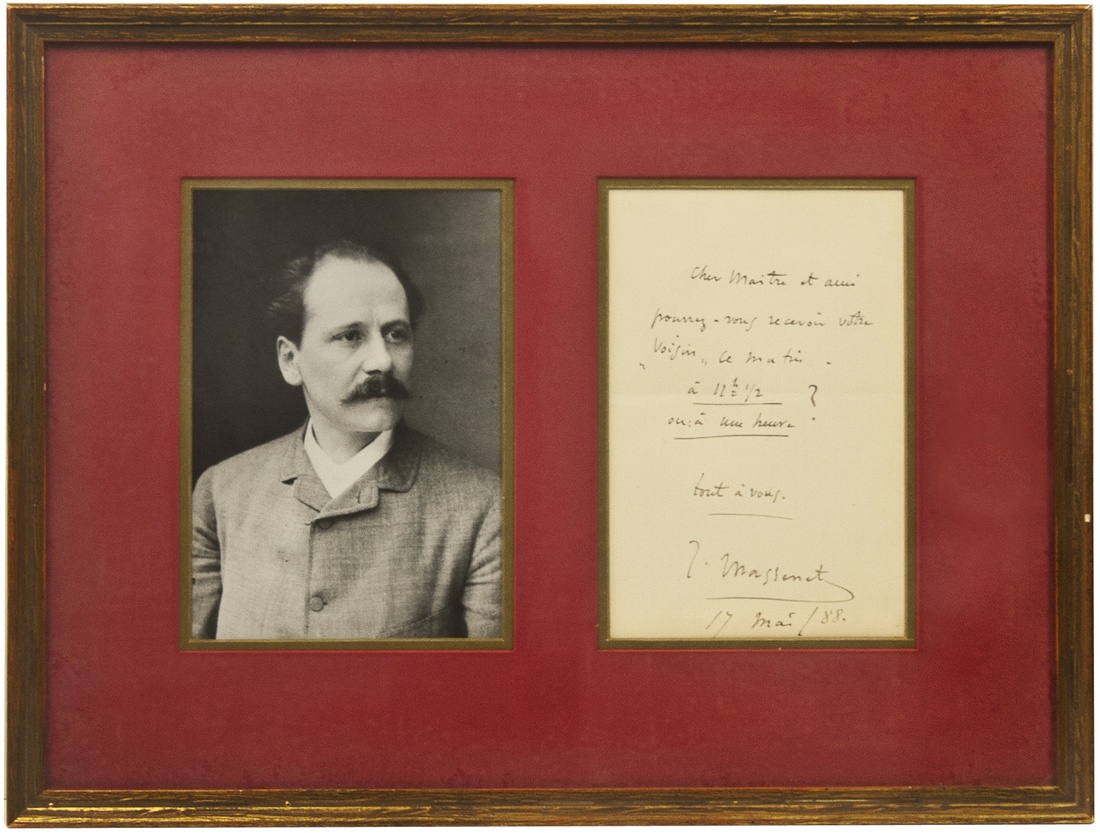 Cher Maitre et ami
pourrez-vous recevoir votre
"Voisin" ce matin -
à 11h 1/2 ?
ou: à une heure
tout à vous.
J. Massenet
17 Mai / 88.